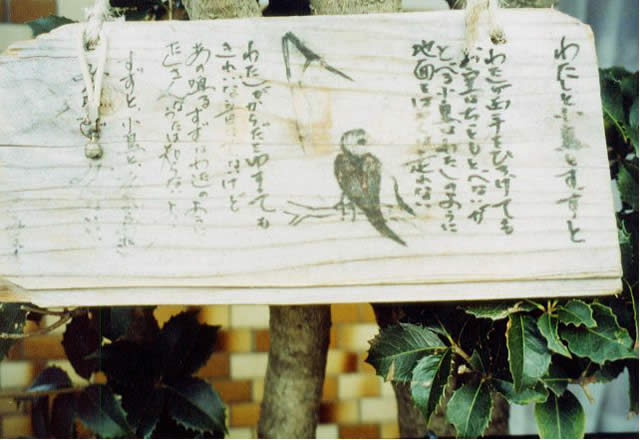 わたしと小鳥とすずと
わたしが両手をひろげても
お空はちっともとべないが
とべる小鳥はわたしのように
地面をはやくは走れない
わたしがからだをゆすっても
きれいな音はでないけど
あの鳴るすずはわたしのように
たくさんなうたは知らないよ
すずと、小鳥と、